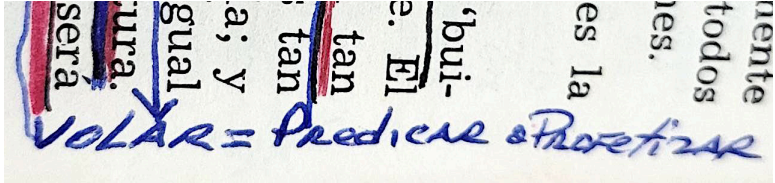 todos
es la
“bui-
e. El
tan
tan
a; y
gual
ura.
sera
VOLAR = PREDICAR o PROFETIZAR